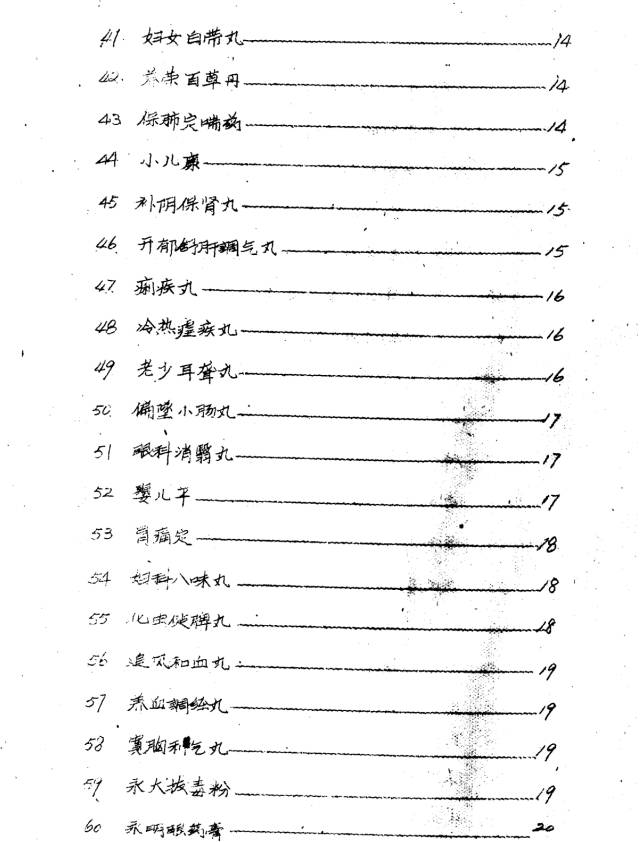 41 妇女白带丸 14
42. 养荣百草丹 14
43 保肺定喘药 14
44 小儿康 15
45 补阴保肾丸 15
46. 开郁舒肝調气丸 15
47. 痢疾丸 16
48 冷热瘧疾丸 16
49 老少耳聋丸 16
50. 偏墜小肠丸 17
51 眼科消翳丸 17
52 婴儿平 17
53 胃痛定 18
54 妇科八味丸 18
55 化虫健脾丸 18
56 追风和血丸 19
57 养血調经丸 19
58 寬胸利气丸 19
59 永大拔毒粉 19
60 永明眼药膏 20